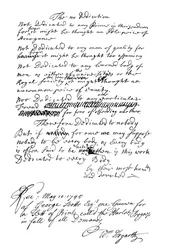 The no Dedication
Not Dedicated to any Prince in Christendom
for fear it might be thought an Idle piece of
Arrogance
Not Dedicated to any man of quality for
fear it might be thought too assuming
Not Dedicated to any learned body of
men as either of the universitys or the
Royal Society for fear it might be thought
an uncommon piece of Vanity.
Nor Dedicated to any particular
for fear of offending another
Therefore Dedicated to nobody
But if for once we may suppose
nobody to be every body as Every body
is often said to be nobody then is this work
Dedicated to every Body
by their most humble
and devoted
May 10 1740
George
a Set of Prints called the Harlots Progress
in full of all Demands
Wm Hogarth